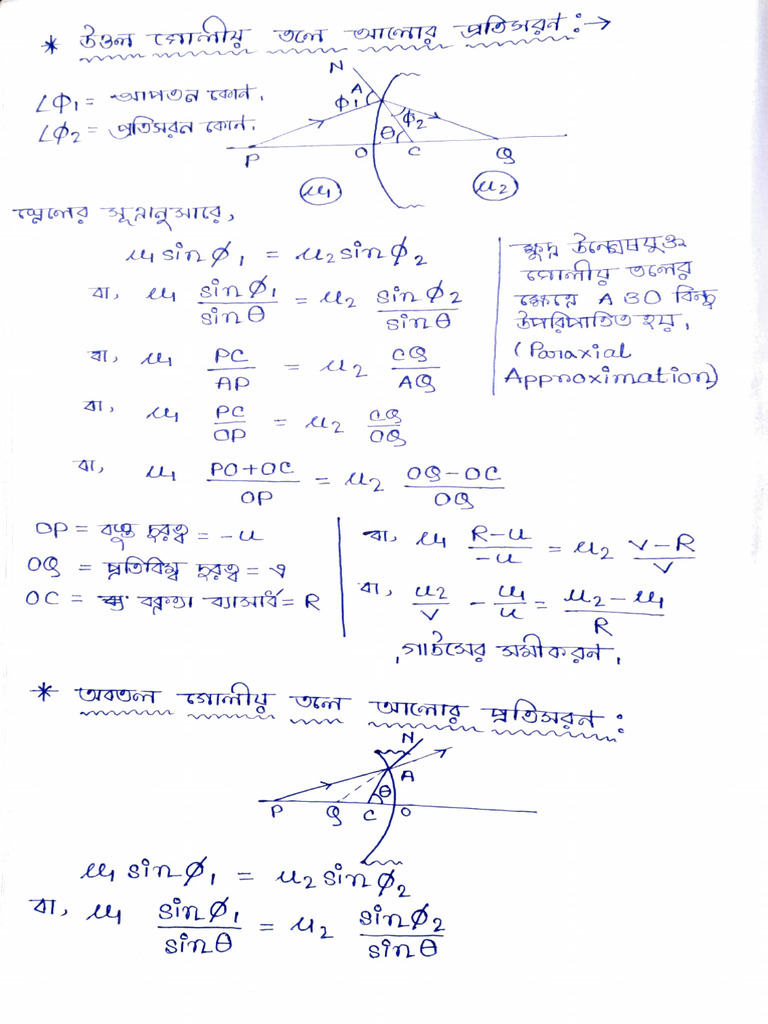 * উত্তল গোলীয় তলে আলোর প্রতিসরন :→
∠Φ₁ = আপতন কোন,
∠Φ₂ = প্রতিসরন কোন.
N
A
Φ₁
Φ₂
θ
P O C Q
μ₁ μ₂
স্নেলের সূত্রানুসারে,
μ₁ sinΦ₁ = μ₂ sinΦ₂
বা, μ₁ sinΦ₁/sinθ = μ₂ sinΦ₂/sinθ
বা, μ₁ PC/AP = μ₂ CQ/AQ
বা, μ₁ PC/OP = μ₂ CQ/OQ
বা, μ₁ PO+OC/OP = μ₂ OQ-OC/OQ
ক্ষুদ্র উন্মেষযুক্ত
গোলীয় তলের
ক্ষেত্রে A ও O বিন্দু
উপরিপাতিত হয়,
(Paraxial
Approximation)
OP = বস্তু দূরত্ব = -u
OQ = প্রতিবিম্ব দূরত্ব = v
OC = বক্রতা ব্যাসার্ধ = R
বা, μ₁ R-u/-u = μ₂ v-R/v
বা, μ₂/v - μ₁/u = μ₂-μ₁/R
,গাউসের সমীকরন,
* অবতল গোলীয় তলে আলোর প্রতিসরন :
N
A
θ
P Q C O
μ₁ sinΦ₁ = μ₂ sinΦ₂
বা, μ₁ sinΦ₁/sinθ = μ₂ sinΦ₂/sinθ